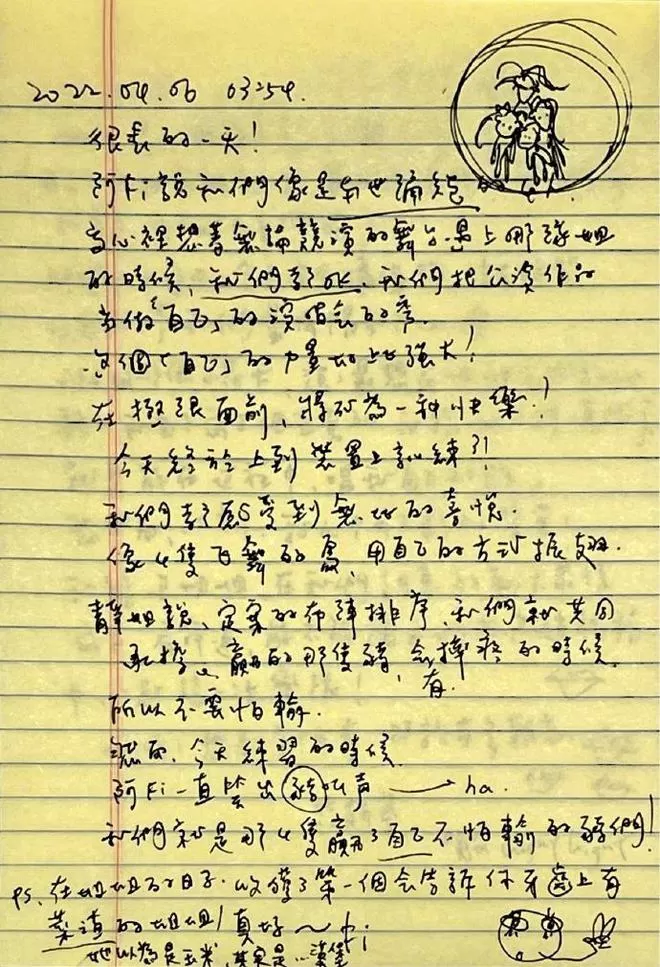 2022.04.06 03:54.
很長的一天!
阿Fi說和們像是自世彌
當心裡想著無論競演的舞台遇上哪隊姐
的時候,我們都OK.我們把公演作品
當做「自己」的演唱會的夢.
這個「自己」的力量如此強大!
在極限面前,轉砂為一种快樂!
今天終於上到裝置上訓練?!
我們都感受到無比的喜悅.
像4隻飞舞的鳥,用自己的方式振翅.
菁華姐說,定案的布陣排序,我們就共同
承擔。贏的那隻豬,会有摔疼的時候.
所以不要怕輸.
然而,今天練習的時候
阿Fi一直笑出豬叫声→ha.
我們就是那4隻贏了自己不怕輸的豬們!
PS.在姐姐的日子.收穫了第一個会告訴你牙齒上有
菜渣的姐姐!真好~fi
她以為是玉米,其实是...漢堡